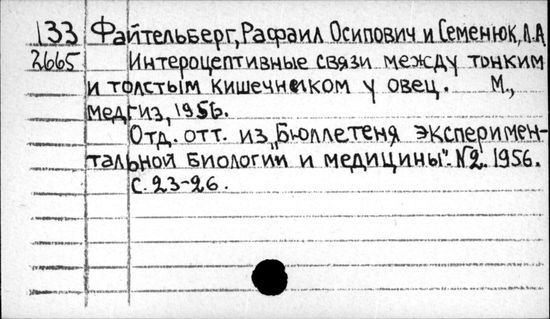 133 Файтельберг, Рафаил Осипович и Семенюк, Л.А
2665 Интероцептивные связи между тонким
и толстым кишечником у овец. М.,
медгиз, 1956.
Отд. отт. из „Бюллетеня эксперимен-
тальной биологии и медицины". №2. 1956.
с. 23-26.